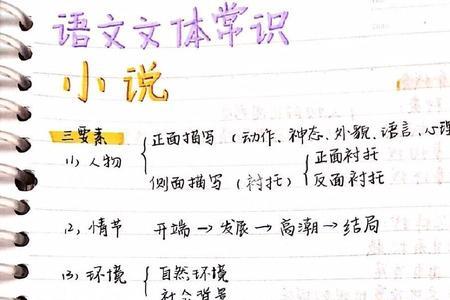 语文文体常识
小说
三要素
正面描写（动作、神态、外貌、语言、心理
(1) 人物
正面衬托
侧面描写（衬托）
反面衬托
(2) 情节 开端→发展→高潮→结局
(3) 环境
自然环境
社会背景